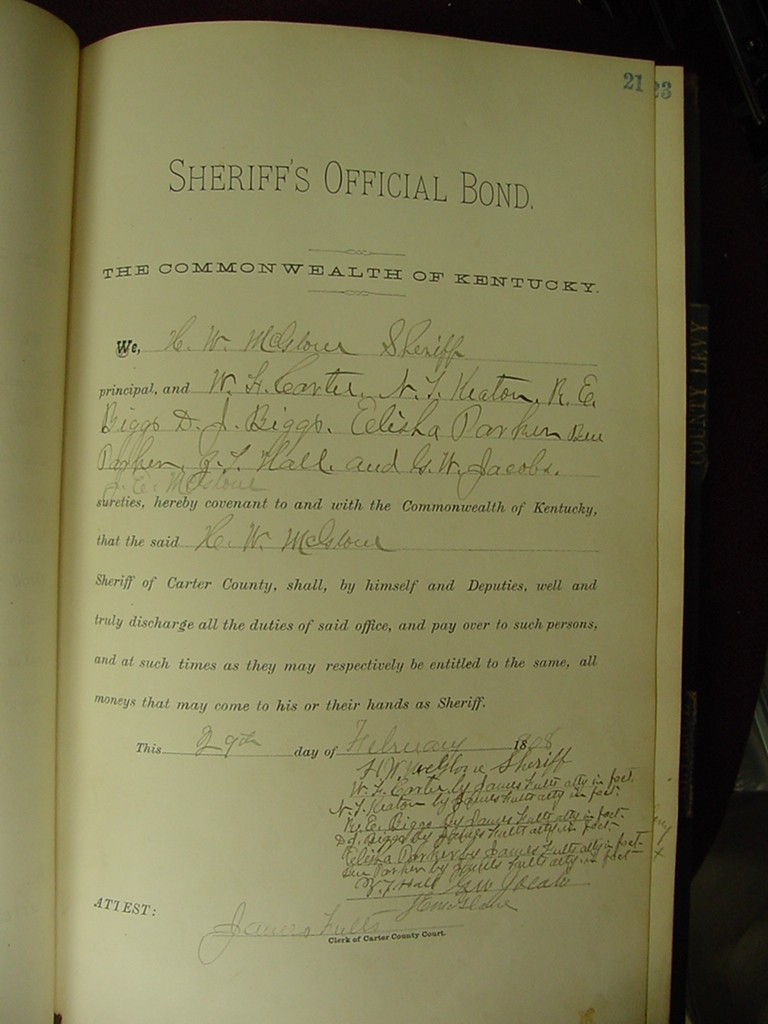 21
23
SHERIFF'S OFFICIAL BOND.
THE COMMONWEALTH OF KENTUCKY.
We, H. W. McGlone Sheriff
principal, and W. H. Carter, N. T. Keaton, R. E.
Biggs D. J. Biggs. Eelisha Parker Ben
Parker, Hall. and G. W. Jacobs.
J. E. McGlone
sureties, hereby covenant to and with the Commonwealth of Kentucky,
that the said H. W. McGlone
Sheriff of Carter County, shall, by himself and Deputies, well and
truly discharge all the duties of said office, and pay over to such persons,
and at such times as they may respectively be entitled to the same, all
moneys that may come to his or their hands as Sheriff.
This 29th day of February 18
H. W. McGlone Sheriff
Carter by James Fults atty in fact.
N. T. Keaton by James Fults atty in fact.
R. E. Biggs by James Fults atty in fact.
D. J. Biggs by James Fults atty in fact.
Eelisha Parker by James Fults atty in fact
Ben Parker by James Fults atty in fact
Hall G W Jacobs
J E McGlone
ATTEST:
James Fults
Clerk of Carter County Court.
COUNTY LEVY